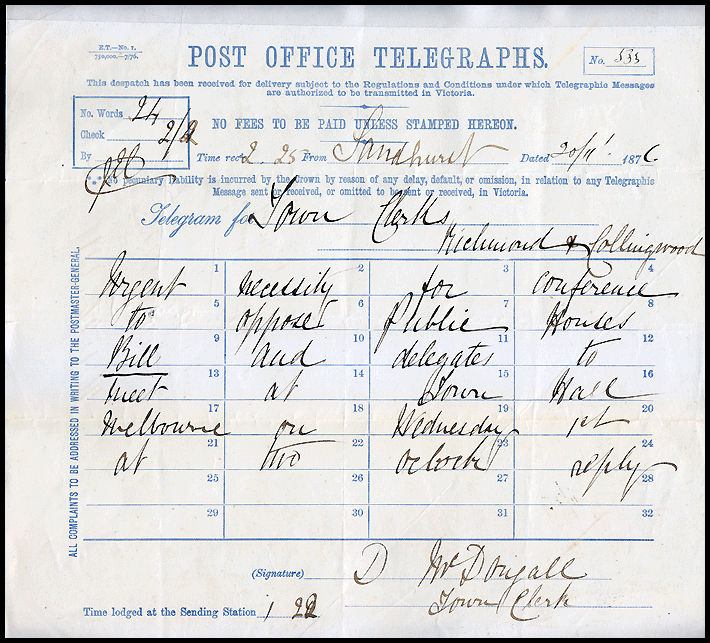 E.T.—No. 1.
750,000.—7/76.
POST OFFICE TELEGRAPHS.
No. 535
This despatch has been received for delivery subject to the Regulations and Conditions under which Telegraphic Messages
are authorized to be transmitted in Victoria.
No. Words 24
Check 2/2
By
NO FEES TO BE PAID UNLESS STAMPED HEREON.
Time recd 2.25 From Sandhurst Dated 20/11 1876.
No pecuniary liability is incurred by the Crown by reason of any delay, default, or omission, in relation to any Telegraphic
Message sent or received, or omitted to be sent or received, in Victoria.
Telegram for Town Clerks
Richmond & Collingwood
1 2 3 4
Urgent necessity for conference
5 6 7 8
to oppose Public Houses
9 10 11 12
Bill and delegates to
13 14 15 16
meet at Town Hall
17 18 19 20
Melbourne on Wednesday 1st
21 22 23 24
at two oclock reply
25 26 27 28
29 30 31 32
ALL COMPLAINTS TO BE ADDRESSED IN WRITING TO THE POSTMASTER-GENERAL.
(Signature) D McDougall
Town Clerk
Time lodged at the Sending Station 1 22